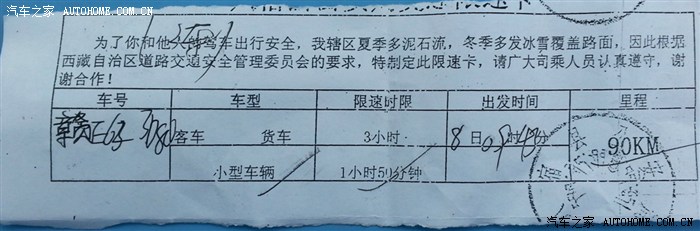 汽车之家 AUTOHOME.COM.CN
为了你和他人驾车出行安全,我辖区夏季多泥石流,冬季多发冰雪覆盖路面,因此根据
西藏自治区道路交通安全管理委员会的要求,特制定此限速卡,请广大司乘人员认真遵守,谢
谢合作!
车号 车型 限速时限 出发时间 里程
赣 客车 货车 3小时 8日 时 分 90KM
小型车辆 1小时50分钟
汽车之家 AUTOHOME.COM.CN